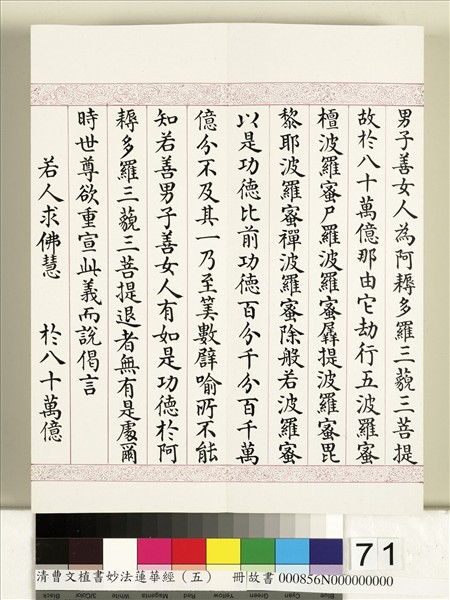 男子善女人為阿耨多羅三藐三菩提
故於八十萬億那由它劫行五波羅蜜
檀波羅蜜尸羅波羅蜜羼提波羅蜜毘
黎耶波羅蜜禪波羅蜜除般若波羅蜜
以是功德比前功德百分千分百千萬
億分不及其一乃至筭數譬喻所不能
知若善男子善女人有如是功德於阿
耨多羅三藐三菩提退者無有是處爾
時世尊欲重宣此義而說偈言
若人求佛慧 於八十萬億
71
清曹文植書妙法蓮華經（五） 冊故書000856N000000000
Black 3/Color White Magenta Red Yellow Green Cyan Blue